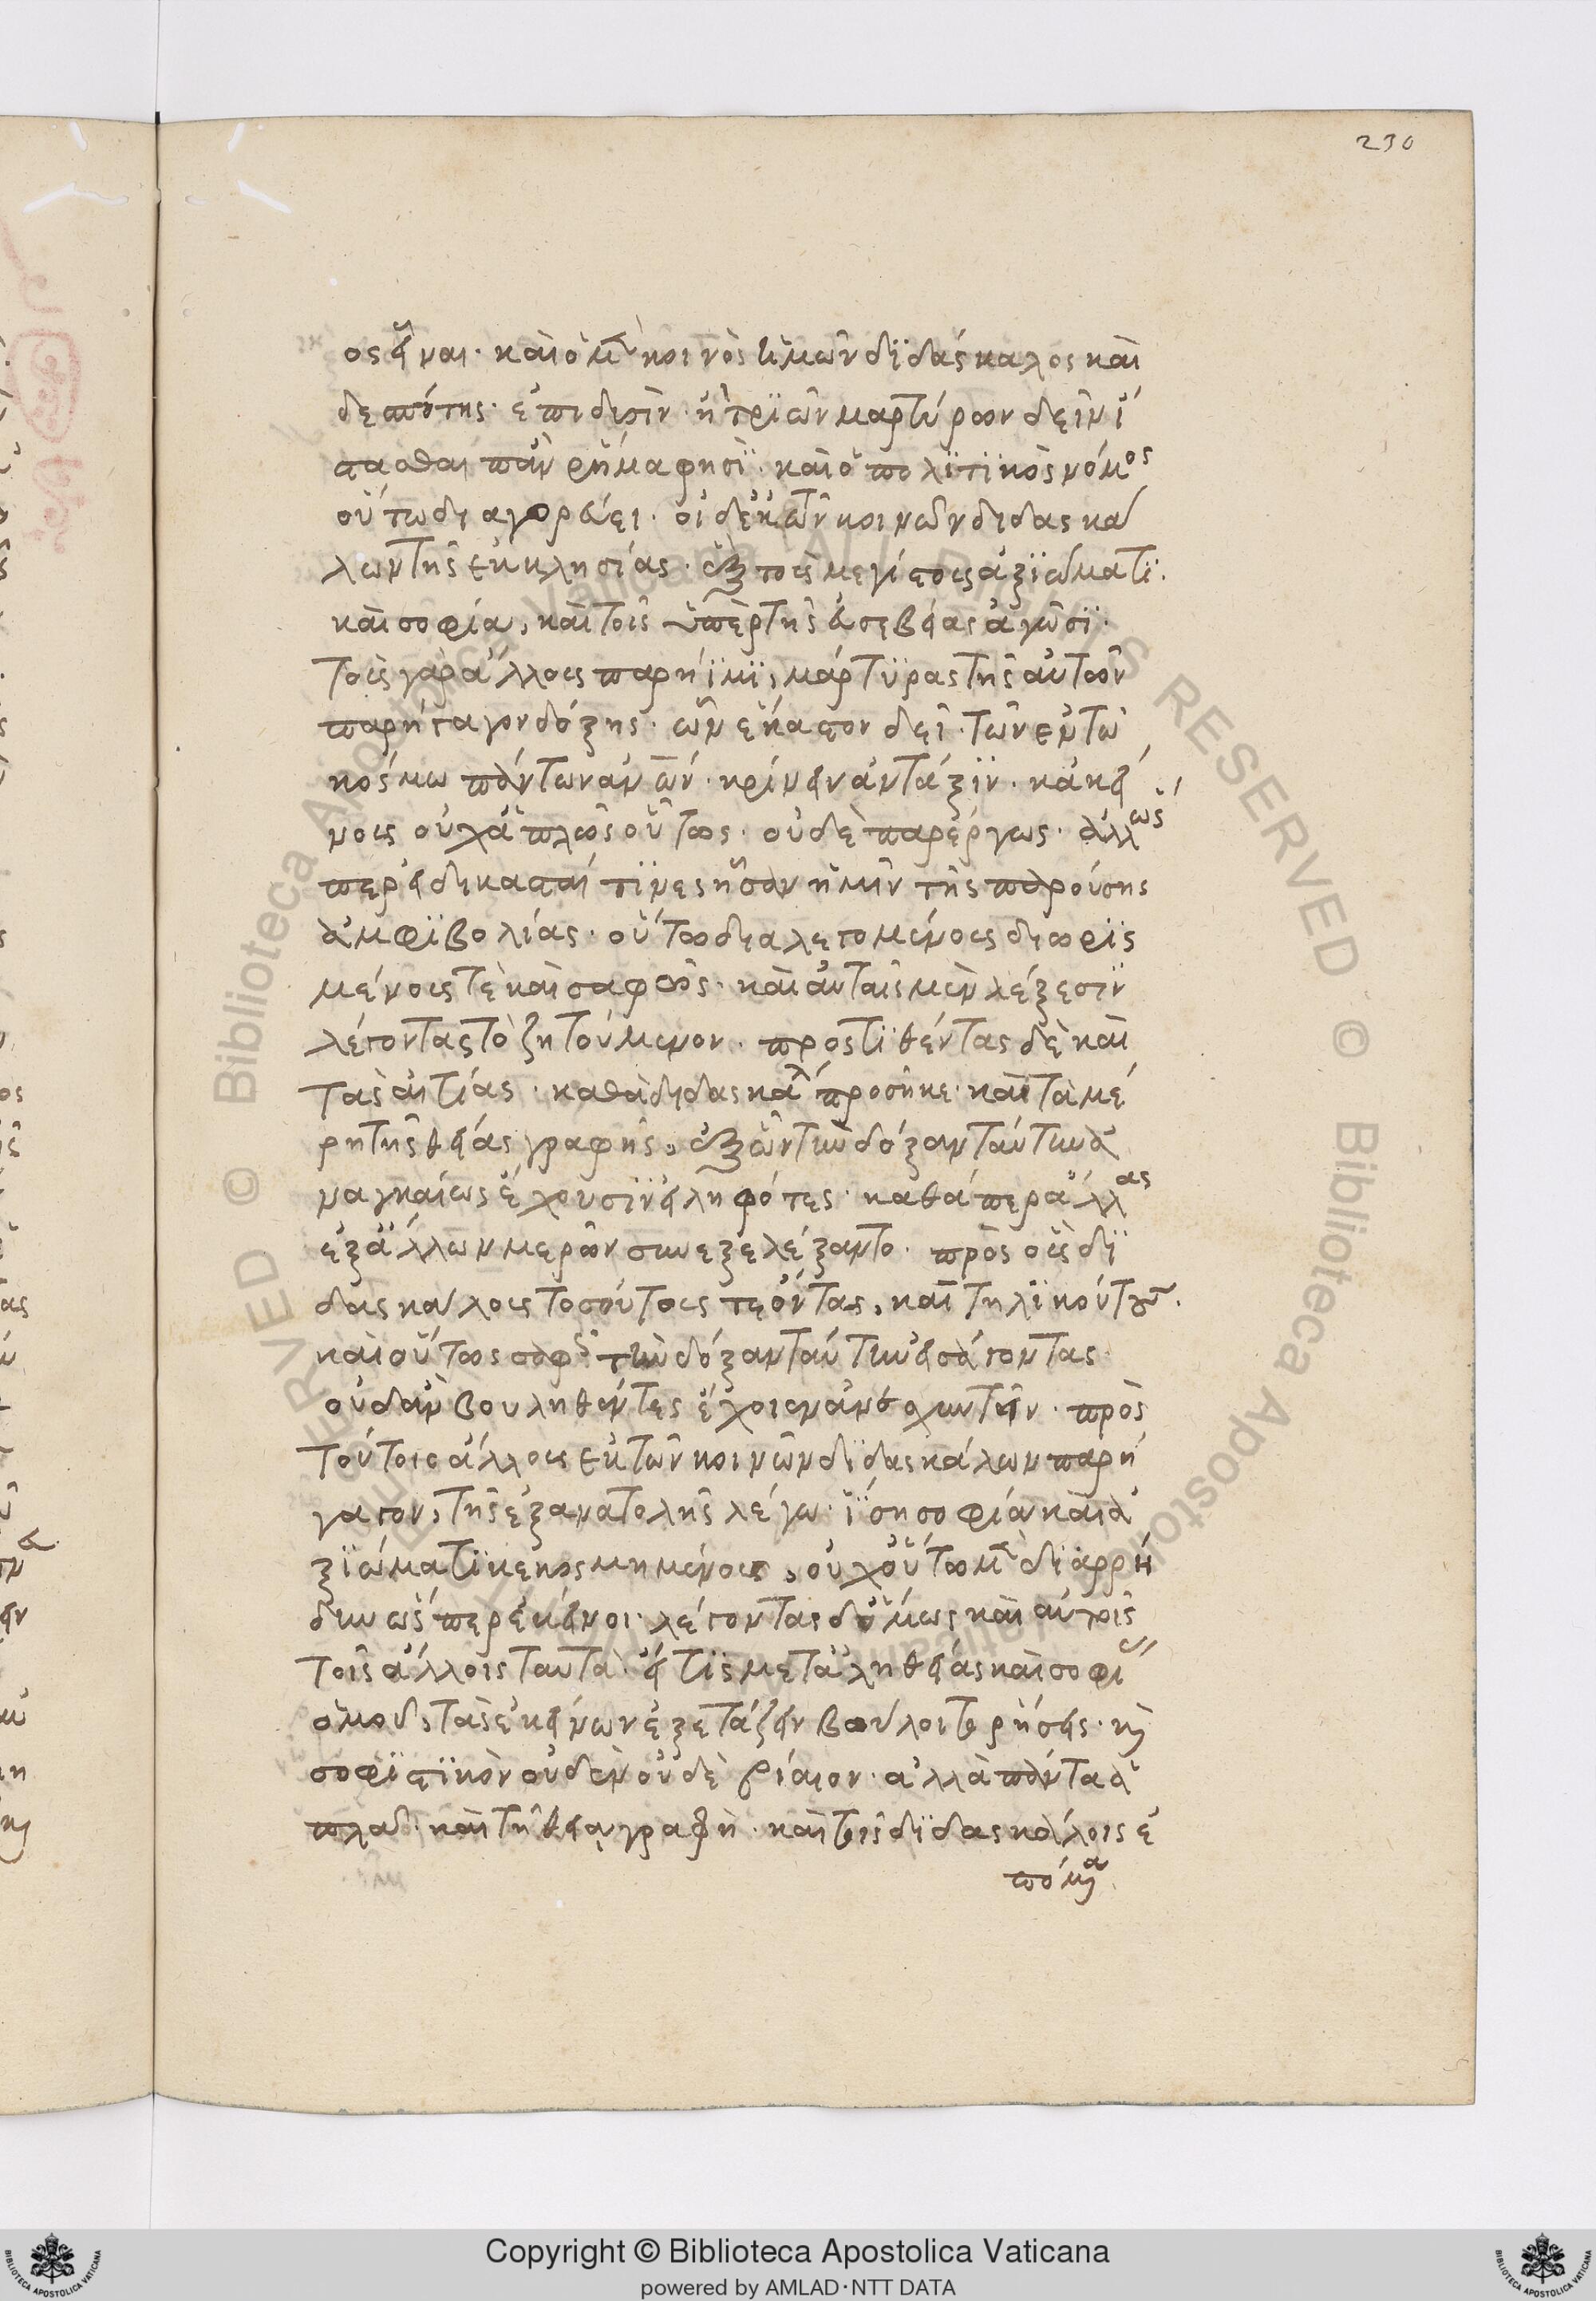 230
ος εἶναι· καὶ ὁ μὲν κοινὸς ἡμῶν διδάσκαλος καὶ
δεσπότης· ἐπὶ δυσὶν· ἢ τριῶν μαρτύρων δεῖν ἵ
στασθαι πᾶν ῥῆμα φησὶ· καὶ ὁ πολιτικὸς νόμος
οὕτω διαγορεύει· οἱ δὲ ἐκ τῶν κοινῶν διδασκά
λων τῆς ἐκκλησίας· ἐν τοῖς μεγίστοις ἀξιώματι·
καὶ σοφία, καὶ τοῖς ὑπὲρ τῆς εὐσεβείας ἀγῶσι·
τοῖς γὰρ ἄλλοις παρήϊμι, μάρτυρας τῆς αὐτῶν
παρήγαγον δόξης· ὧν ἕκαστον δεῖ· τῶν ἐν τῶ
κόσμω πάντων ἀνθρώπων· κρίνειν ἀντάξιν· κἀκεί
νοις οὐχ ἁπλῶς οὕτως· οὐδὲ παρέργως· ἀλλ' ὥς
περ εἰ δικασταί τινες ἦσαν ἡμῖν τῆς παρούσης
ἀμφιβολίας· οὕτω διαλεγομένοις διωρις
μένοις τὲ καὶ σαφῶς· καὶ αὐταῖς μὲν λέξεσιν
λέγοντας τὸ ζητούμενον· προστιθέντας δὲ καὶ
τὰς αἰτίας· καθὰ διδασκάλ προσῆκε· καὶ τὰ μέ
ρη τῆς θείας γραφῆς, ἐξ ὧν τὴν δόξαν ταύτην ἀ
ναγκαίως ἔχουσιν εἰληφότες· καθάπερ ἄλλας
ἐξ ἄλλων μερῶν συνεξελέξαντο· πρὸς οἷς δι
δασκάλοις τοσούτοις τε ὄντας, καὶ τηλικούτοις·
καὶ οὕτως σαφῶς τὴν δόξαν ταύτην εἰσάγοντας·
οὐδ' ἂν βουληθέντες ἔχοιεν ἀντισχεῖν· πρὸς
τούτοις ἄλλοις ἐκ τῶν κοινῶν διδασκάλων παρή
γαγον, τῆς ἐξ ἀνατολῆς λέγω· ἴση σοφία καὶ ἀ
ξιώματι κεκοσμημένοις, οὐχ οὕτω μὲν διαρρή
δην ὥσπερ ἐκεῖνοι· λέγοντας δ' ὅμως καὶ αὐτοῖς
τοῖς ἄλλοις ταυτὰ· εἴ τις μετ' ἀληθείας καὶ σοφί
ὁμοῦ, τὰς ἐκείνων ἐξετάζειν βούλοιτο ῥήσεις· καὶ
σοφιστικὸν οὐδὲν οὐδὲ βίαιον· ἀλλὰ πάντα ἁ
πλᾶ· καὶ τῆ θεία γραφὴ· καὶ τοῖς διδασκάλοις ἑ
πόμενα